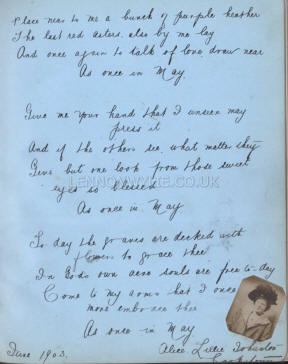 Place near to me a bunch of purple heather
The last red asters, also by me lay
And once again to talk of love draw near
As once in May.
Give me your hand that I unseen may
press it
And if the others see, what matter they
Give but one look from those sweet
eyes so blessed
As once in May
To day the graves are decked with
flowers to grace thee
In God's own acre souls are free to-day
Come to my arms that I once
more embrace thee
As once in May
June 1903.
Alice Lillie Johnston
LENNONWYLIE.CO.UK